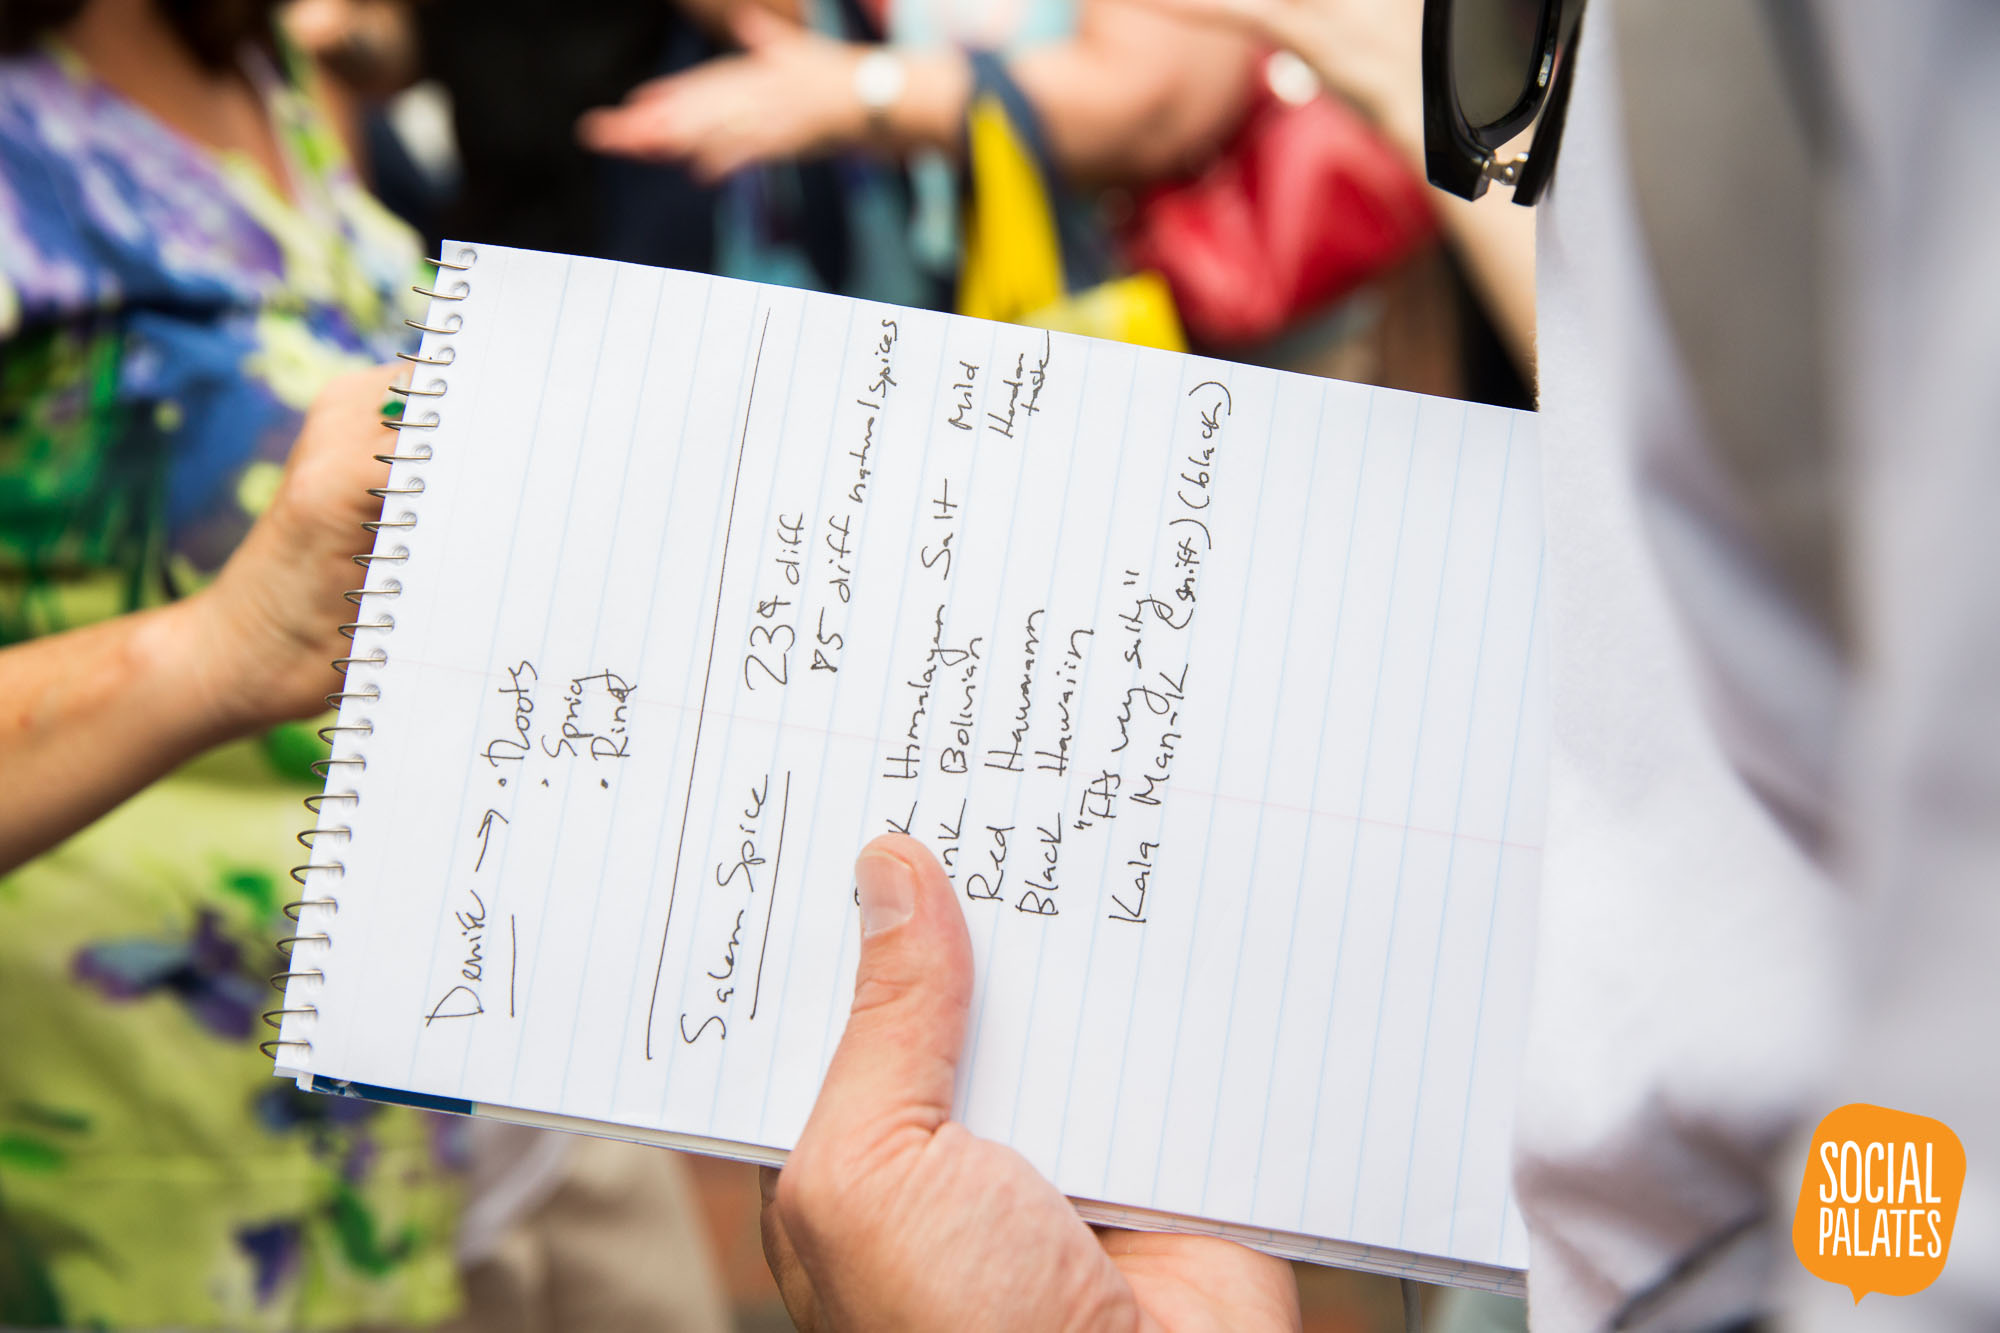 Denise → • Roots
• Sprig
• Rind
Salem Spice 234 diff
85 diff natural spices
Himalayan Salt Mild
Bolivian
Red Hawaiann
Black Hawaiin
"very salty"
Kala Manak (sniff) (black)
SOCIAL
PALATES